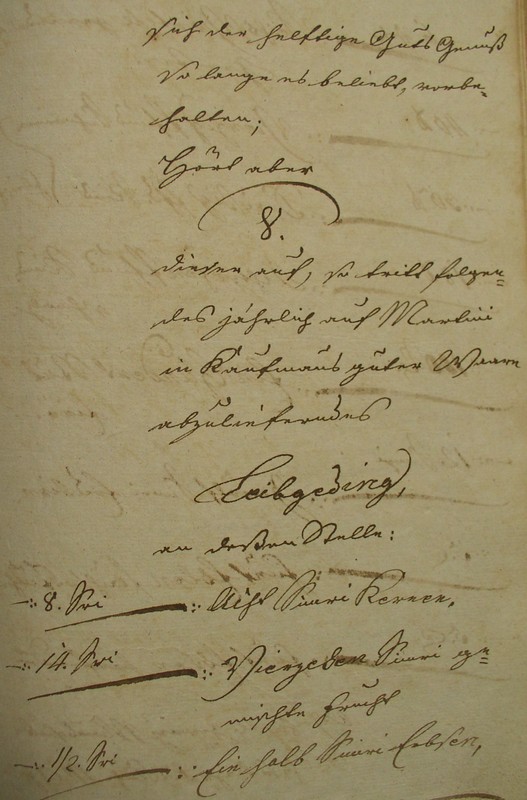 sich der helftige Guts Genuß
so lange es beliebt, vorbe=
halten;
Hört aber
8.
dieser auf, so tritt folgen=
des jährlich auf Martini
in Kaufmans guter Waare
abzulieferndes
Leibgeding,
an deßen Stelle:
-: 8. Sri -: Acht Simri Kernen,
-: 14. Sri -: Vierzehen Simri ge=
mischte Frucht
-: 1/2. Sri -: Ein halb Simri Erbsen,